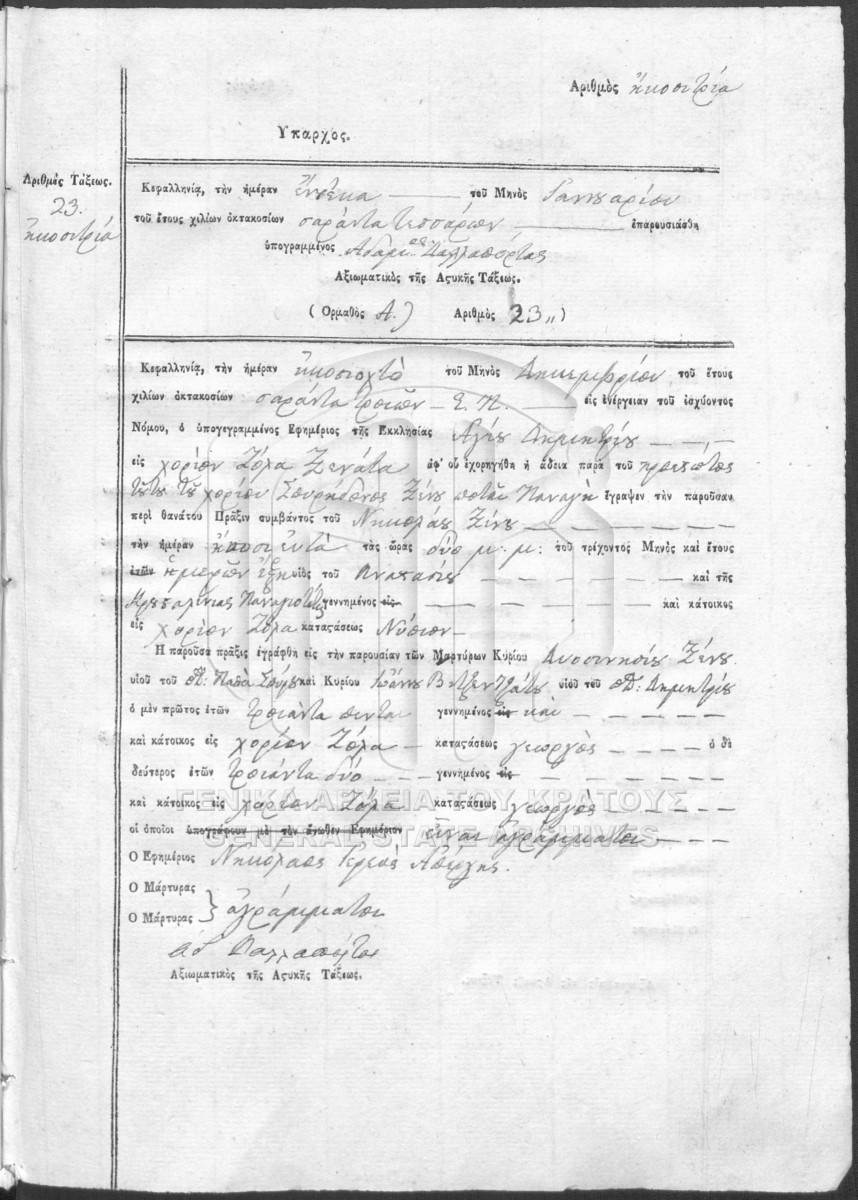 Αριθμὸς ἠκοσιτρία
Υπαρχος.
Αριθμὸς Τάξεως.
23.
ἠκοσιτρία
Κεφαλληνία, τὴν ἡμέραν ἔντεκα τοῦ Μηνὸς Ιαννουαρίου
τοῦ ἔτους χιλίων ὀκτακοσίων σαράντα τεσσάρων ἐπαρουσιάσθη
ὑπογραμμένος Δαλλαπόρτας
Αξιωματικὸς τῆς Αςυκῆς Τάξεως.
( Ορμαθὸς Α. ) Αριθμὸς 23 „ )
Κεφαλληνία, τὴν ἡμέραν ἠκοσιοχτὸ τοῦ Μηνὸς Δηκεμβρίου τοῦ ἔτους
χιλίων ὀκτακοσίων σαράντα τριῶν Ε. Π. εἰς ἐνέργειαν τοῦ ἰσχύοντος
Νόμου, ὁ ὑπογεγραμμένος Εφημέριος τῆς Εκκλησίας Αγίου Δημητρίου
εἰς χορίον Ζόλα Ξενάτα ἀφ' οὗ ἐχορηγήθη ἡ ἄδεια παρὰ τοῦ προεστῶτος
τοῦ χορίου Σπυρήδονος Ζένου ποτὲ Παναγὴ ἔγραψεν τὴν παροῦσαν
περὶ θανάτου Πρᾶξιν συμβάντος τοῦ Νηκολάου Ζένου
τὴν ἡμέραν ἠκοσι ἑντὰ τὰς ὥρας δύο μ. μ: τοῦ τρίχοντος Μηνὸς καὶ ἔτους
ἐτῶν ἡμερῶν ἕξη υἱὸς τοῦ Αναστασίου καὶ τῆς
Κρουσταλένιας Παναγιοτάτου γεννημένος εἰς καὶ κάτοικος
εἰς χορίον Ζόλα καταςάσεως Νύπιον
Η παροῦσα πρᾶξις ἐγράφθη εἰς τὴν παρουσίαν τῶν Μαρτύρων Κυρίου Διονησίου Ζένου
υἱοῦ τοῦ Παπᾶ Σπύρου καὶ Κυρίου Ιωάννου Βιτζεντζάτου υἱοῦ τοῦ Δημητρίου
ὁ μὲν πρῶτος ἐτῶν τριάντα πενται γεννημένος εἰς καὶ
καὶ κάτοικος εἰς χορίον Ζόλα καταςάσεως γεωργὸς ὁ δὲ
δεύτερος ἐτῶν τριάντα δύο γεννημένος εἰς
καὶ κάτοικος εἰς χορίον Ζόλα καταςάσεως γεωργὸς
ΓΕΝΙΚΑ ΑΡΧΕΙΑ ΤΟΥ ΚΡΑΤΟΥΣ
οἱ ὁποῖοι ὑπογράφουν μὲ τὸν ἄνωθεν Εφημέριον εἶναι ἀγράμματοι
GENERAL STATE ARCHIVES
Ο Εφημέριος Νηκόλαος Ιερεὺς Απέργης.
Ο Μάρτυρας
Ο Μάρτυρας } ἀγράμματοι
Αδ Δαλλαπόρτας
Αξιωματικὸς τῆς Αςυκῆς Τάξεως.